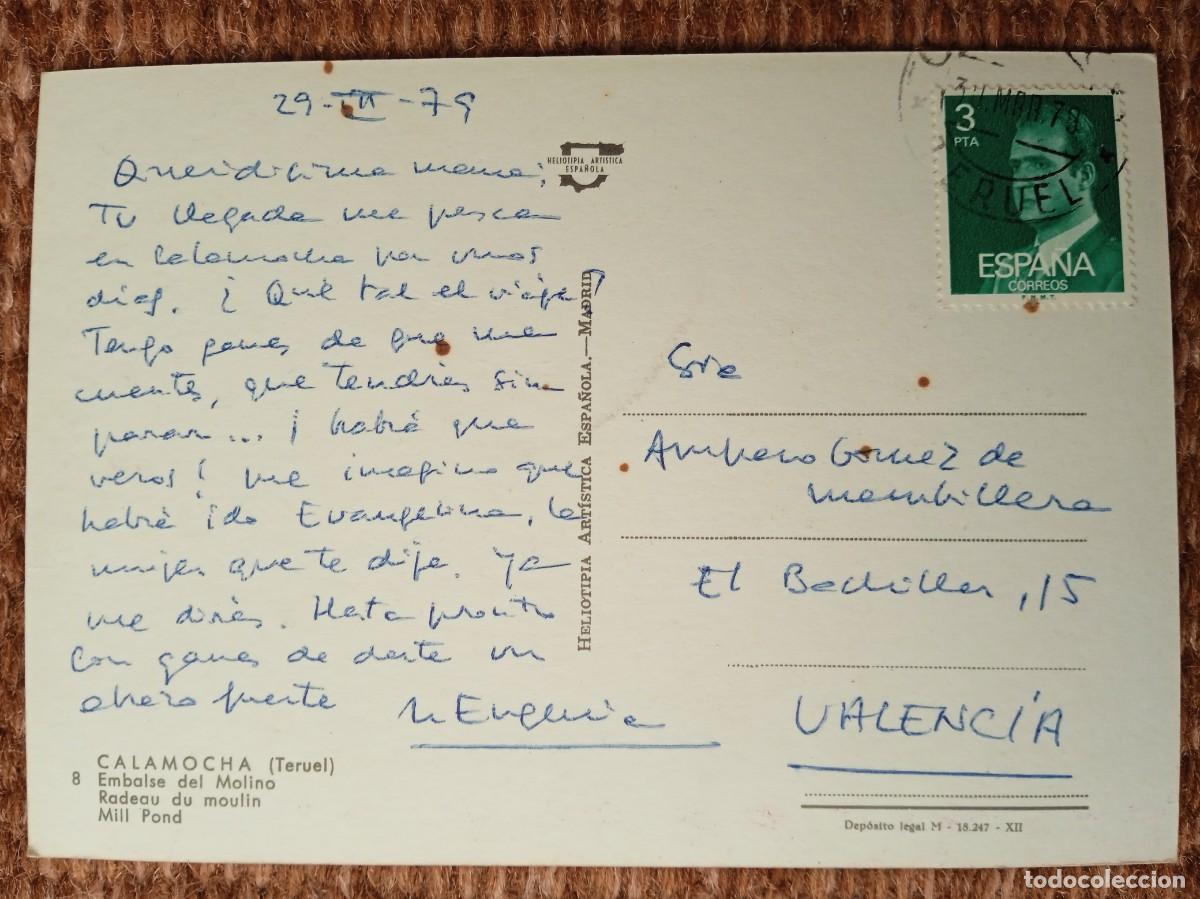 29-III-79
Queridisima mama:
Tu llegada me pesca
en Calamocha por unos
dias. ¿Qué tal el viaje?
Tengo ganas de que me
cuentes, que tendrás sin
parar... ¡habrá que
veros! me imagino que
habrá ido Evangelina, la
mujer que te dije. Ya
me dirás. Hasta pronto
con ganas de darte un
abrazo fuerte
Mª Eugenia
CALAMOCHA (Teruel)
8 Embalse del Molino
Radeau du moulin
Mill Pond
HELIOTIPIA ARTISTICA
ESPAÑOLA
HELIOTIPIA ARTÍSTICA ESPAÑOLA.—MADRID
MAR.79
TERUEL
3
PTA
ESPAÑA
CORREOS
F.N.M.T.
Sra
Amparo Gomez de
Membrillera
El Bachiller, 15
VALENCÍA
Depósito legal M - 18.247 - XII
todocoleccion